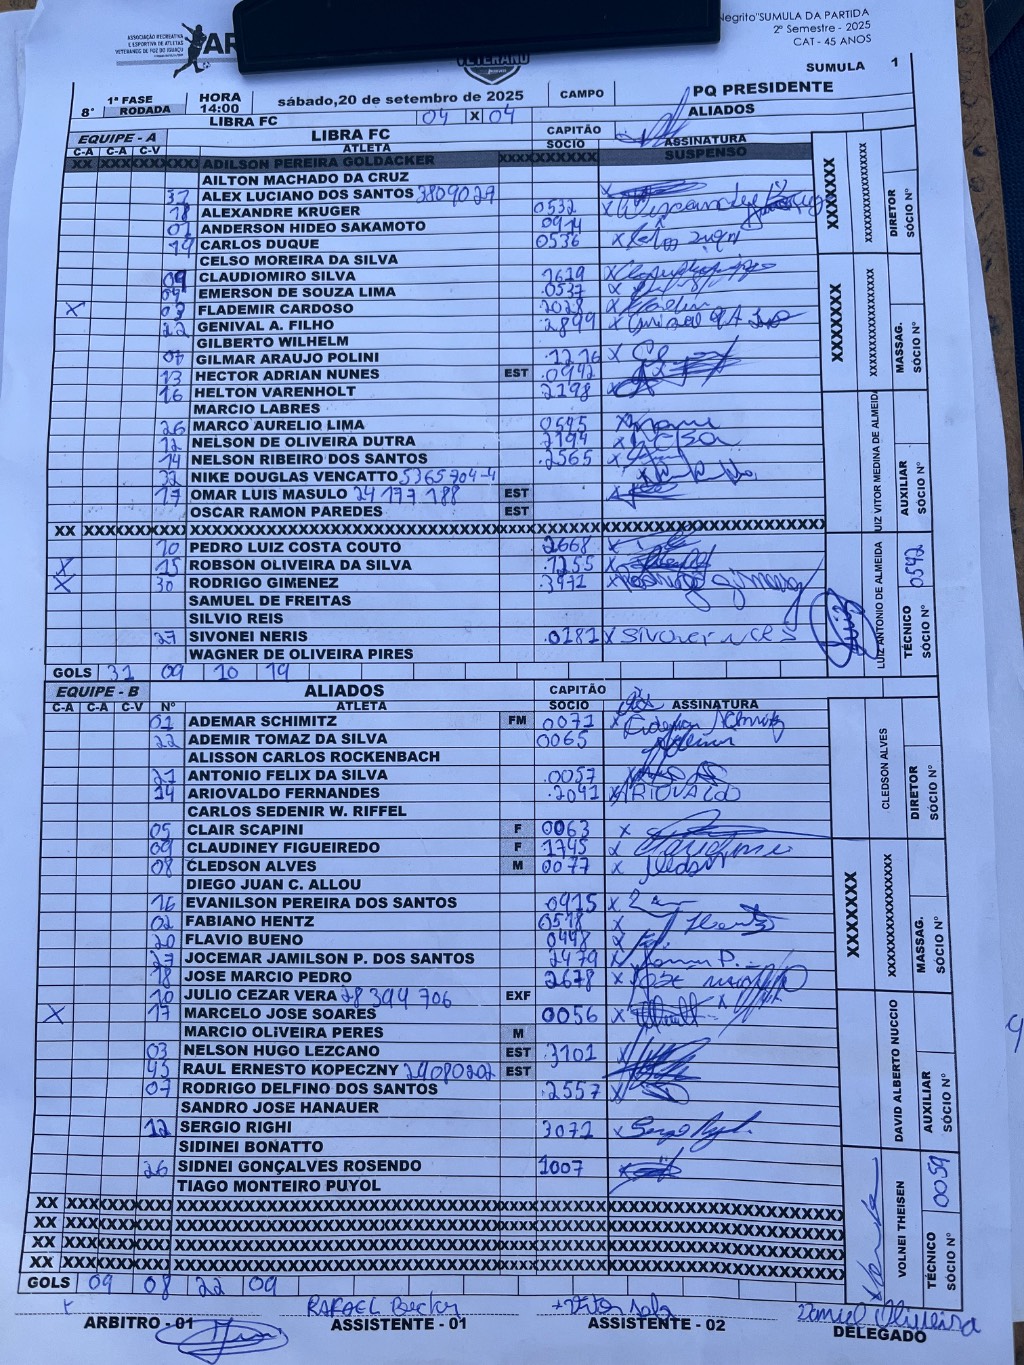 Negrito"SUMULA DA PARTIDA
2º Semestre - 2025
CAT - 45 ANOS
ASSOCIAÇÃO RECREATIVA
E ESPORTIVA DE ATLETAS
VETERANOS DE FOZ DO IGUAÇU
AR
VETERANO
SUMULA 1
8° 1ª FASE RODADA HORA 14:00 sábado,20 de setembro de 2025 CAMPO PQ PRESIDENTE
LIBRA FC 04 X 04 ALIADOS
EQUIPE - A LIBRA FC CAPITÃO
C-A C-A C-V ATLETA SOCIO ASSINATURA
XX XXXXXXXXXXX ADILSON PEREIRA GOLDACKER XXXXXXXXXXX SUSPENSO
AILTON MACHADO DA CRUZ
ALEX LUCIANO DOS SANTOS 3809027
18 ALEXANDRE KRUGER 0532
01 ANDERSON HIDEO SAKAMOTO 0914
19 CARLOS DUQUE 0536
CELSO MOREIRA DA SILVA
09 CLAUDIOMIRO SILVA 1619
EMERSON DE SOUZA LIMA .0537
X 03 FLADEMIR CARDOSO 2028
22 GENIVAL A. FILHO 2899
GILBERTO WILHELM
GILMAR ARAUJO POLINI .1216
13 HECTOR ADRIAN NUNES EST .0942
16 HELTON VARENHOLT 2198
MARCIO LABRES
26 MARCO AURELIO LIMA 0545
12 NELSON DE OLIVEIRA DUTRA 2194
14 NELSON RIBEIRO DOS SANTOS .2565
32 NIKE DOUGLAS VENCATTO 5365704-4
17 OMAR LUIS MASULO 24 177 188 EST
OSCAR RAMON PAREDES EST
10 PEDRO LUIZ COSTA COUTO 2668
X 15 ROBSON OLIVEIRA DA SILVA .1255
X 30 RODRIGO GIMENEZ 3971
SAMUEL DE FREITAS
SILVIO REIS
27 SIVONEI NERIS .0181 X SIVONEI NERIS
WAGNER DE OLIVEIRA PIRES
GOLS 31 09 10 19
DIRETOR SÓCIO Nº
MASSAG. SÓCIO Nº
LUIZ VITOR MEDINA DE ALMEIDA AUXILIAR SÓCIO Nº
LUIZ ANTONIO DE ALMEIDA TÉCNICO SÓCIO Nº 0542
EQUIPE - B ALIADOS CAPITÃO
C-A C-A C-V Nº ATLETA SOCIO ASSINATURA
01 ADEMAR SCHIMITZ FM 0071
22 ADEMIR TOMAZ DA SILVA 0065
ALISSON CARLOS ROCKENBACH
21 ANTONIO FELIX DA SILVA .0057
14 ARIOVALDO FERNANDES .2041 X ARIOVALDO
CARLOS SEDENIR W. RIFFEL
05 CLAIR SCAPINI F 0063 X
09 CLAUDINEY FIGUEIREDO F 1745
08 CLEDSON ALVES M 0077 X Cledson
DIEGO JUAN C. ALLOU
16 EVANILSON PEREIRA DOS SANTOS 0915
02 FABIANO HENTZ 0518 X Hentz
20 FLAVIO BUENO 0448
27 JOCEMAR JAMILSON P. DOS SANTOS 2479
18 JOSE MARCIO PEDRO 2678 X JOSE
10 JULIO CEZAR VERA 28 394 706 EXF
X 17 MARCELO JOSE SOARES 0056 X
MARCIO OLIVEIRA PERES M
03 NELSON HUGO LEZCANO EST .3101
43 RAUL ERNESTO KOPECZNY 24080202 EST
07 RODRIGO DELFINO DOS SANTOS .2557
SANDRO JOSE HANAUER
12 SERGIO RIGHI 3072
SIDINEI BONATTO
26 SIDNEI GONÇALVES ROSENDO 1007
TIAGO MONTEIRO PUYOL
GOLS 09 08 22 09
CLEDSON ALVES DIRETOR SÓCIO Nº
MASSAG. SÓCIO Nº
DAVID ALBERTO NUCCIO AUXILIAR SÓCIO Nº
VOLNEI THEISEN TÉCNICO SÓCIO Nº 0059
RAFAEL Becker
Daniel Oliveira
ARBITRO - 01 ASSISTENTE - 01 ASSISTENTE - 02 DELEGADO